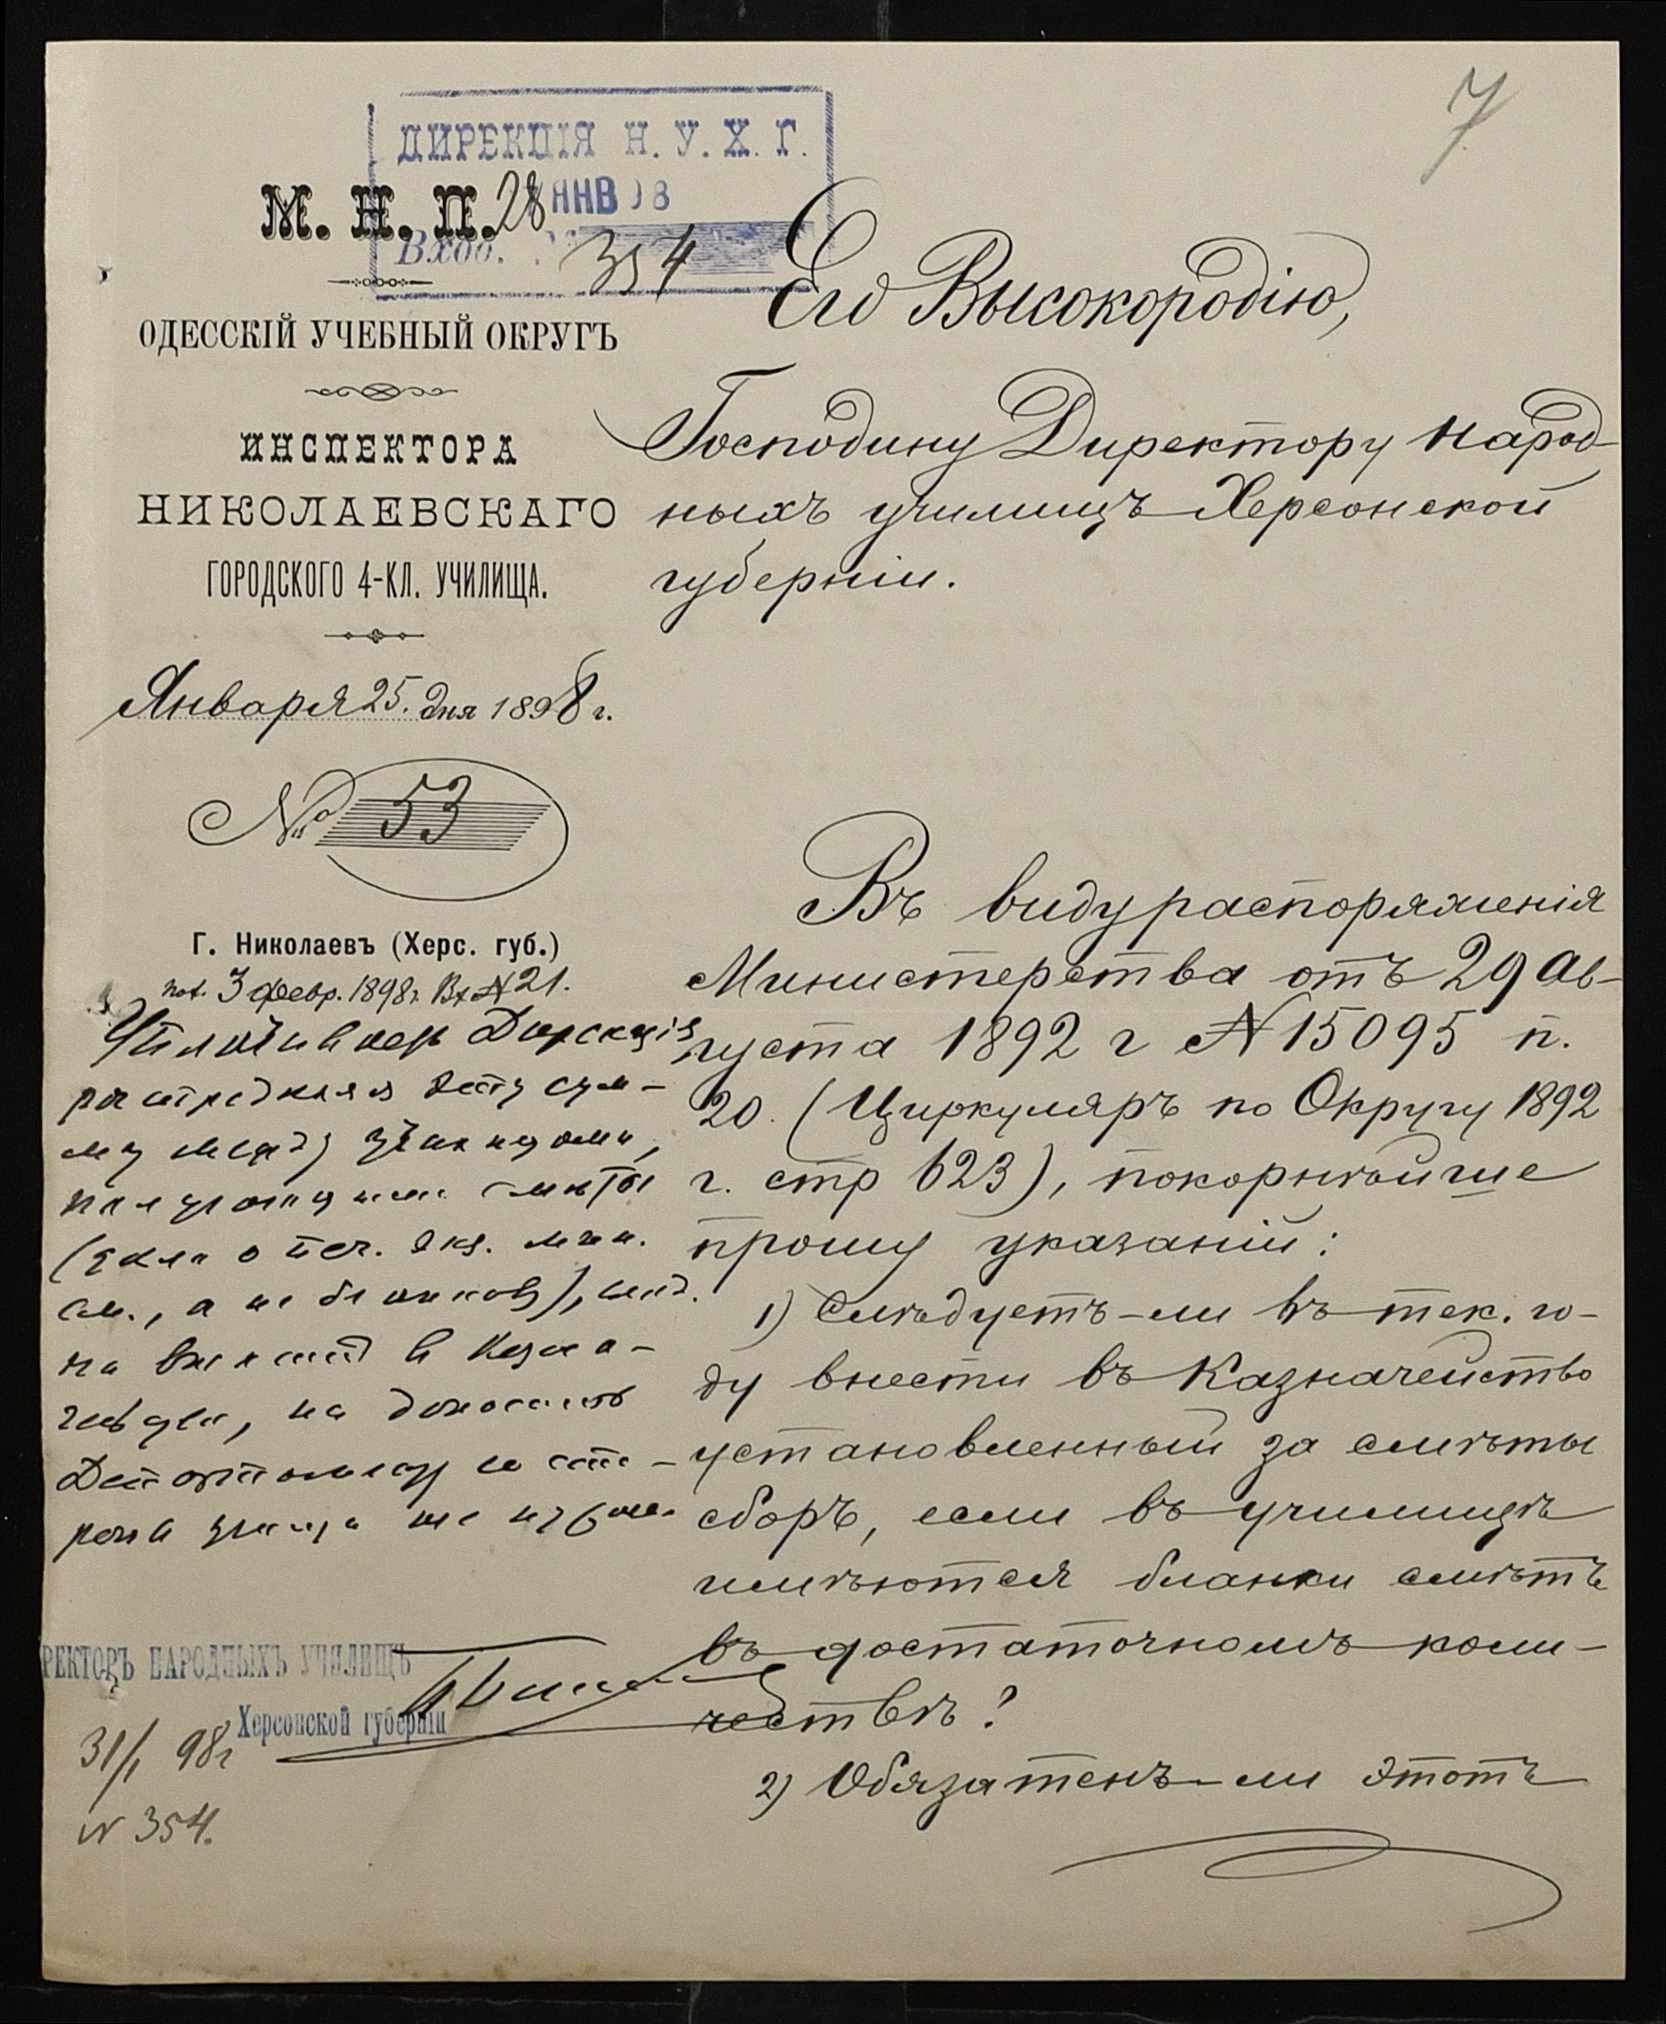 7
ДИРЕКЦІЯ Н. У. Х. Г.
28 ЯНВ 98
Вход. 354
М. Н. П.
ОДЕССКІЙ УЧЕБНЫЙ ОКРУГЪ
ИНСПЕКТОРА
НИКОЛАЕВСКАГО
ГОРОДСКОГО 4-КЛ. УЧИЛИЩА.
Января 25. дня 1898 г.
№ 53
Г. Николаевъ (Херс. губ.)
Его Высокородію,
Господину Директору Народ-
ныхъ училищъ Херсонской
губерніи.
Въ виду распоряженія
Министерства отъ 29 Ав-
густа 1892 г № 15095 п.
20. (Циркуляръ по Округу 1892
г. стр 623), покорнѣйше
прошу указаній:
1) Слѣдуетъ-ли въ тек. го-
ду внести въ Казначейство
установленный за смѣты
сборъ, если въ училищѣ
имѣются бланки смѣтъ
въ достаточномъ коли-
чествѣ?
2) Обязателенъ-ли этотъ
Пол. 3 февр. 1898 г. Вх № 21.
Дирекція
сум-
му
смѣты
а не бланковъ)
в Казна-
РЕКТОРЪ НАРОДНЫХЪ УЧИЛИЩЪ
Херсонской губерніи
31/I 98 г
№ 354.